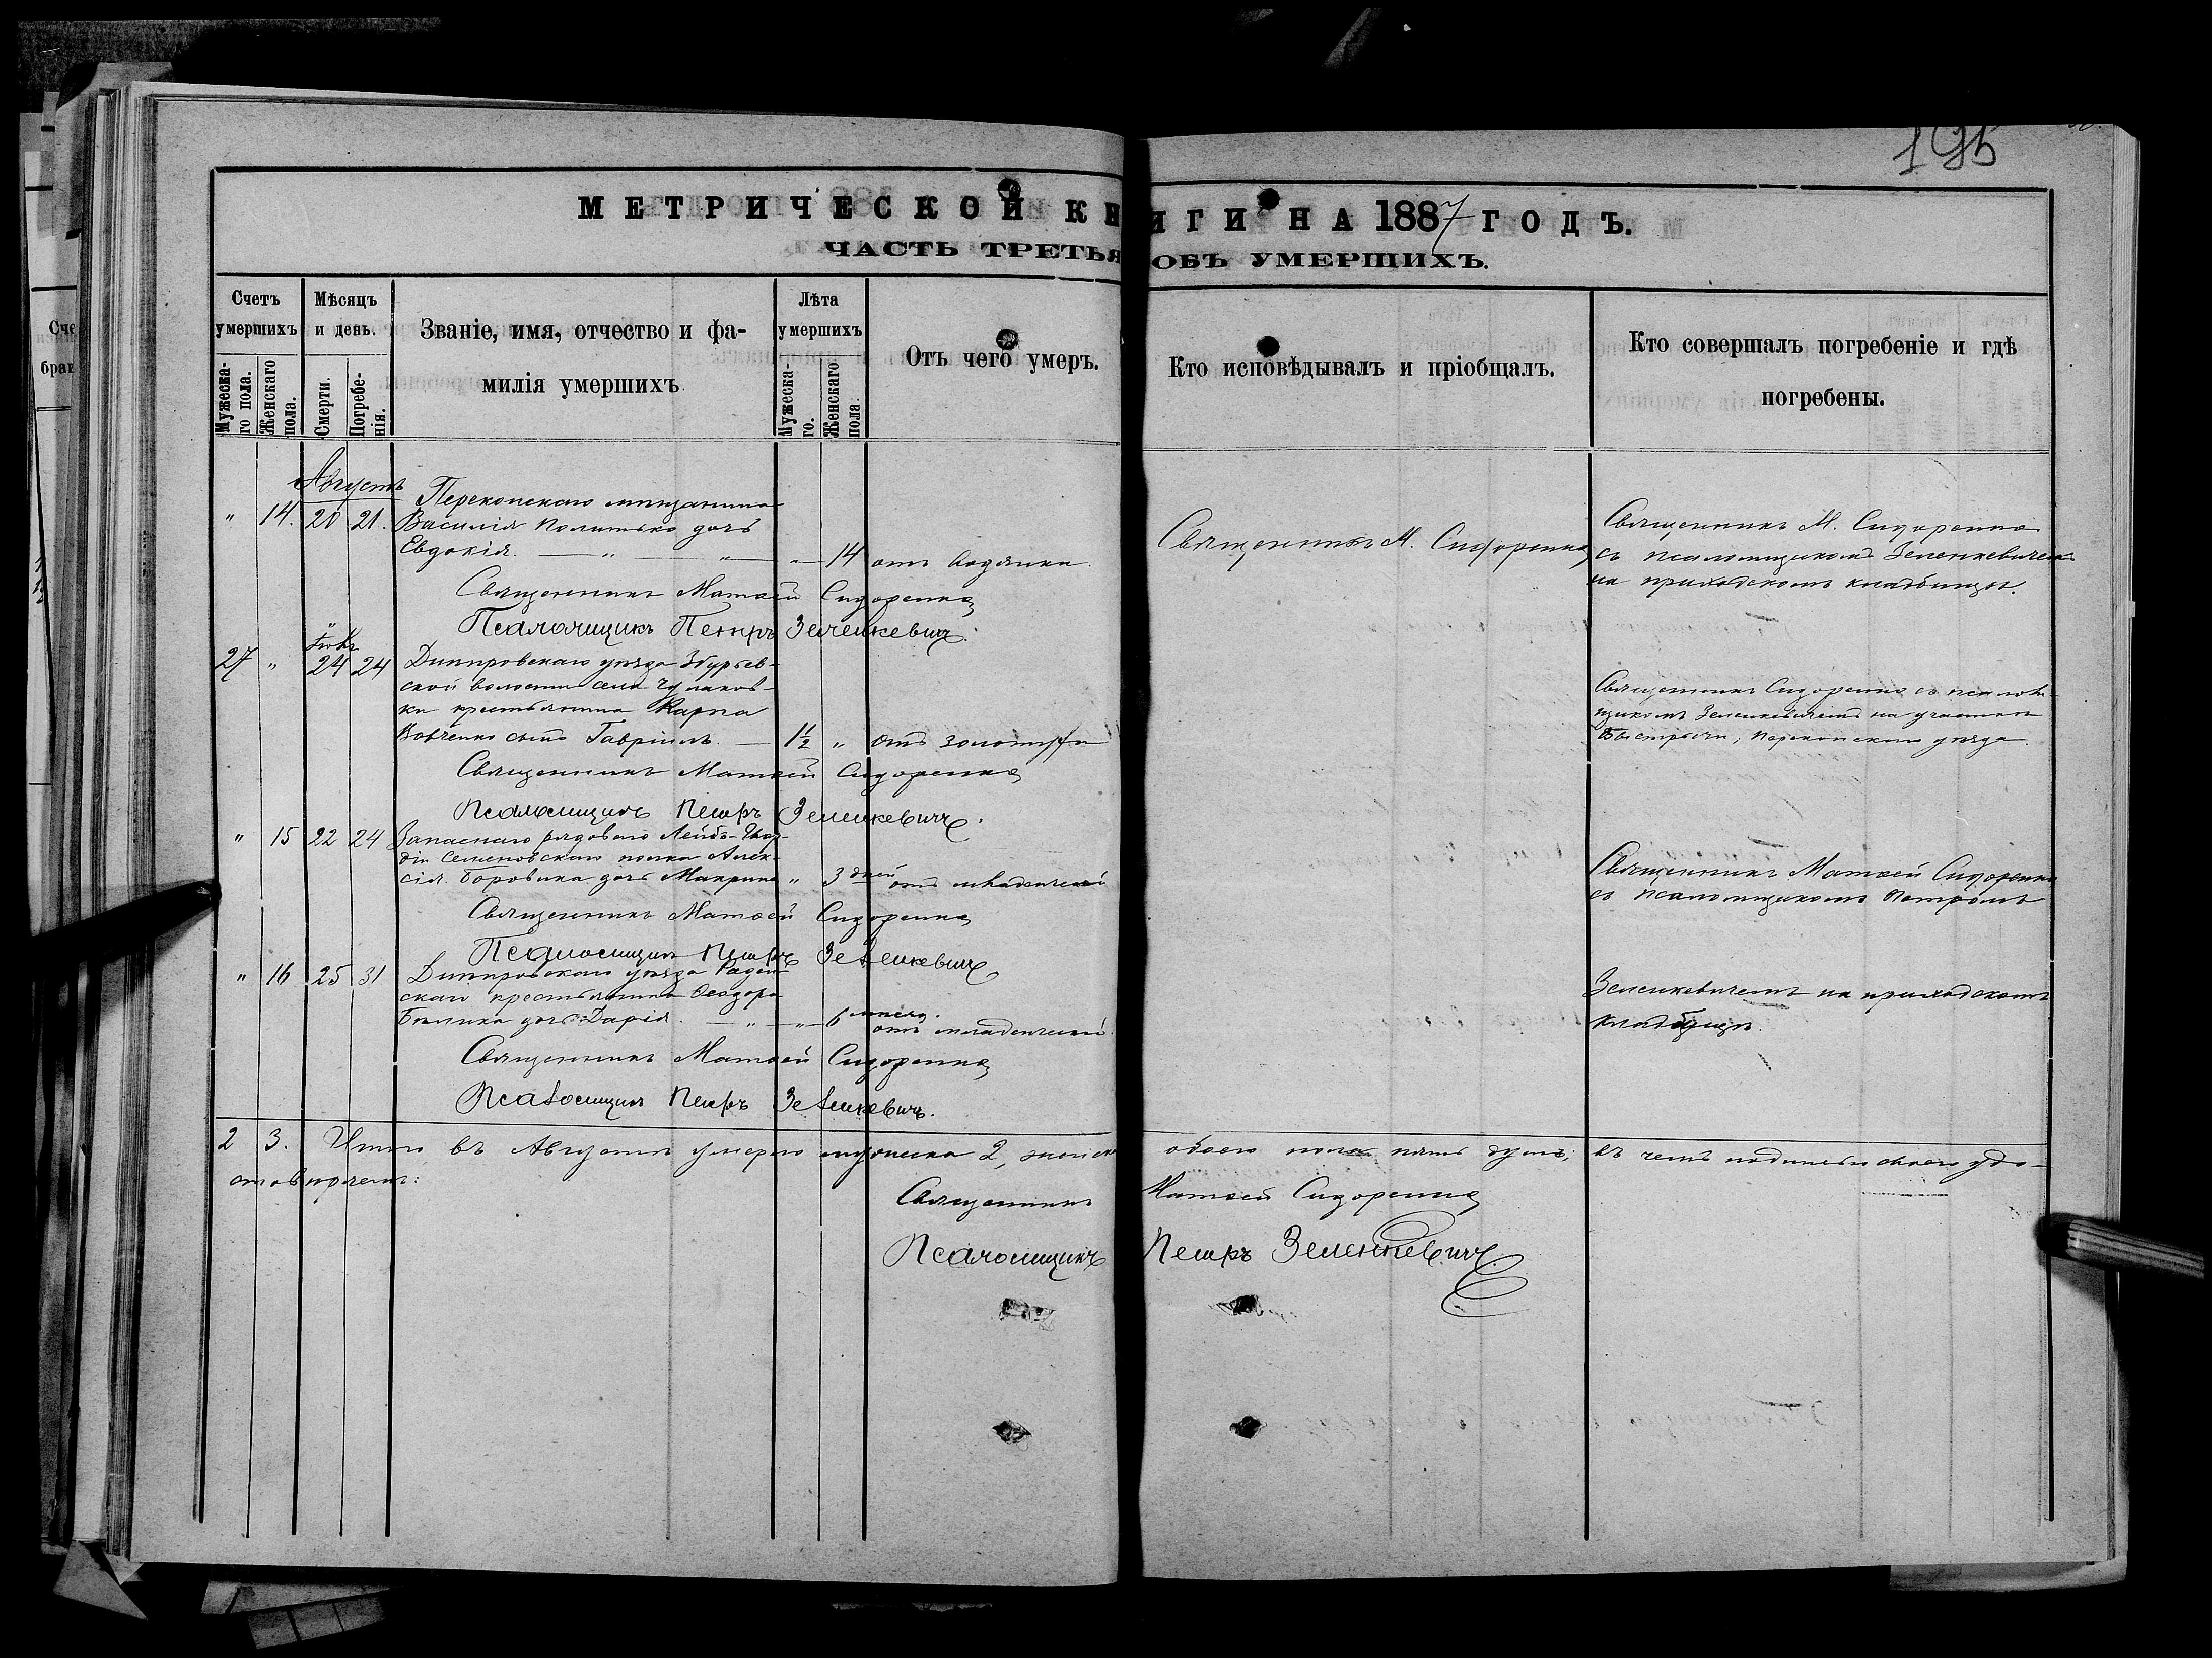 195
МЕТРИЧЕСКОЙ КНИГИ НА 1887 ГОДЪ.
ЧАСТЬ ТРЕТЬЯ ОБЪ УМЕРШИХЪ.
Счетъ умершихъ
Мѣсяцъ и день.
Званіе, имя, отчество и фа-
милія умершихъ
Лѣта умершихъ
Отъ чего умеръ.
Кто исповѣдывалъ и пріобщалъ.
Кто совершалъ погребеніе и гдѣ
погребены.
Мужеска-
го пола.
Женскаго
пола.
Смерти.
Погребе-
нія.
Мужеска-
го.
Женскаго
пола
Августъ
" 14. 20 21. Перекопскаго мѣщанина
Василія дочь
Евдокія. — " — " — " — 14 отъ водянки.
Священникъ Матѳей Сидоренко
Псаломщикъ Петръ Зеленкевичъ.
Священникъ М. Сидоренко
Священникъ М. Сидоренко
съ псаломщикомъ Зеленкевичемъ
на приходскомъ кладбищѣ.
27 " 24 24 Днѣпровскаго уѣзда Збурьев-
ской волости села Чулаков-
ки крестьянина Карпа
Вовченко сынъ Гавріилъ. — 1 1/2 " отъ золотухи
Священникъ Матѳей Сидоренко
Псаломщикъ Петръ Зеленкевичъ.
Священникъ Сидоренко съ псалом-
щикомъ Зеленкевичемъ на участкѣ
Перекопскаго уѣзда.
" 15 22 24 Запаснаго рядового Лейбъ-Гвар-
діи Семеновскаго полка Алек-
сія Боровика дочь Макрина " 3 дней отъ младенческой
Священникъ Матѳей Сидоренко
Псаломщикъ Петръ Зеленкевичъ
Священникъ Матѳей Сидоренко
съ псаломщикомъ Петромъ
" 16 25 31 Днѣпровскаго уѣзда Раден-
скаго крестьянина Ѳеодора
Бѣлика дочь Дарія. — " — " — 6 мѣсяц. отъ младенческой.
Священникъ Матѳей Сидоренко
Псаломщикъ Петръ Зеленкевичъ.
Зеленкевичемъ на приходскомъ
кладбищѣ.
2 3. Итого въ Августѣ умерло мужеска 2, женск обоего пола пять душъ; въ чемъ подписью своею удо-
стовѣряемъ:
Священникъ Матѳей Сидоренко
Псаломщикъ Петръ Зеленкевичъ.